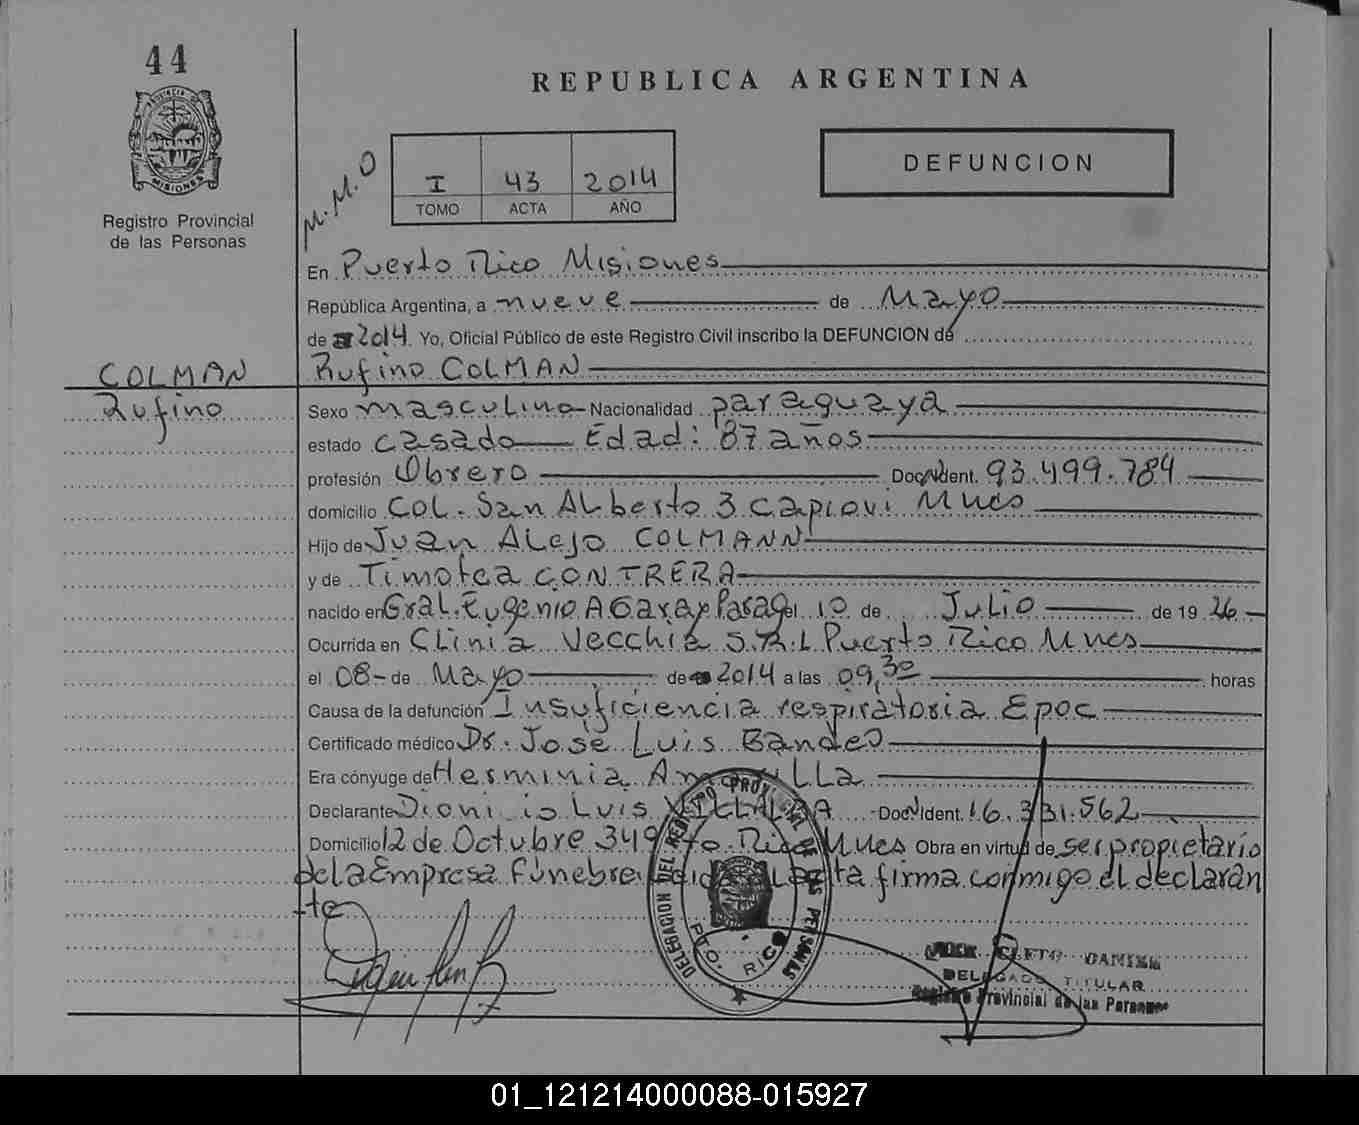 44
PROVINCIA DE
MISIONES
Registro Provincial
de las Personas
REPUBLICA ARGENTINA
M.M.O
I 43 2014
TOMO ACTA AÑO
DEFUNCION
En Puerto Rico Misiones
República Argentina, a nueve de Mayo
de 2014. Yo, Oficial Público de este Registro Civil inscribo la DEFUNCION de
COLMAN
Rufino
Rufino COLMAN
Sexo masculino Nacionalidad paraguaya
estado casado Edad: 87 años
profesión Obrero Doc. Ident. 93.499.784
domicilio COL. San Alberto 3 Capiovi Mnes
Hijo de Juan Alejo COLMANN
y de Timotea CONTRERA
nacido en Gral. Eugenio A Garay Parag el 10 de Julio de 1926
Ocurrida en Clinia Vecchia S.R.L Puerto Rico Mnes
el 08 de Mayo de 2014 a las 09,30 horas
Causa de la defunción Insuficiencia respiratoria Epoc
Certificado médico Dr. José Luis Bandeo
Era cónyuge de Herminia
Declarante Dionicio Luis VILLALBA Doc. Ident. 16.331.562
Domicilio 12 de Octubre 349 Pto. Rico Mnes Obra en virtud de ser propietario
de la Empresa Fúnebre Leida el acta firma conmigo el declaran
-te
DELEGACION DEL REGISTRO PROVINCIAL DE LAS PERSONAS
PTO. RICO
CLETO
DELEGADO TITULAR
Registro Provincial de las Personas
01_121214000088-015927